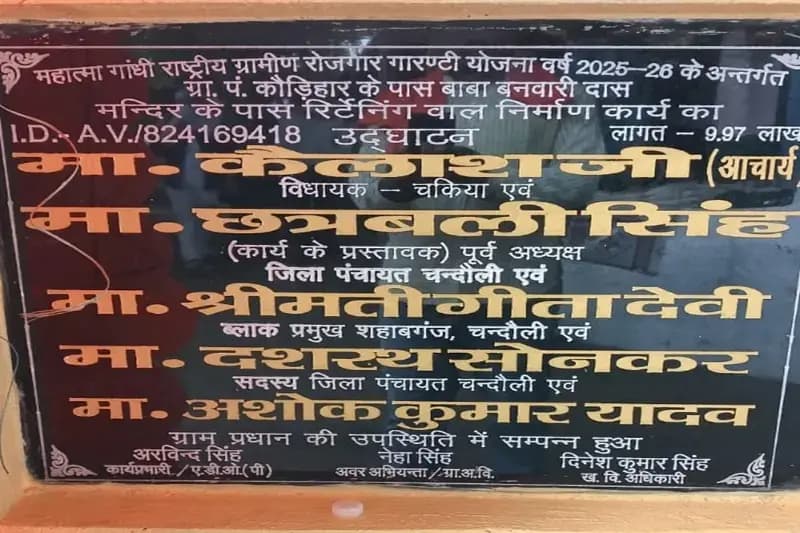 महात्मा गांधी राष्ट्रीय ग्रामीण रोजगार गारण्टी योजना वर्ष 2025–26 के अन्तर्गत
ग्रा. पं. कौड़िहार के पास बाबा बनवारी दास
मन्दिर के पास रिर्टेनिंग वाल निर्माण कार्य का
I.D.- A.V./824169418 उद्घाटन लागत – 9.97 लाख
मा. कैलाश जी (आचार्य)
विधायक – चकिया एवं
मा. छत्रबली सिंह
(कार्य के प्रस्तावक) पूर्व अध्यक्ष
जिला पंचायत चन्दौली एवं
मा. श्रीमती गीता देवी
ब्लाक प्रमुख शहाबगंज, चन्दौली एवं
मा. दशरथ सोनकर
सदस्य जिला पंचायत चन्दौली एवं
मा. अशोक कुमार यादव
ग्राम प्रधान की उपस्थिति में सम्पन्न हुआ
अरविन्द सिंह नेहा सिंह दिनेश कुमार सिंह
कार्यप्रभारी / ए.डी.ओ.(पी) अवर अभियन्ता / ग्रा.अ.वि. ख. वि. अधिकारी